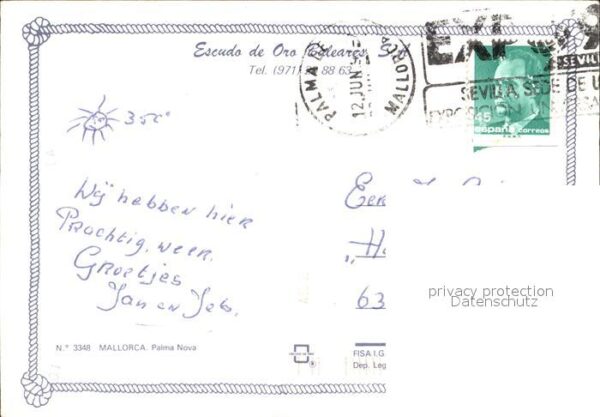 Escudo de Oro Baleares,
Tel. (971) 88 63
PALMA DE MALLORCA
12 JUN
EXPO 92
SEVILLA
SEVILLA, SEDE DE
45
españa correos
35°
Wij hebben hier
Prachtig, weer.
Groetjes
Jan en
"H
63
privacy protection
Datenschutz
N.º 3348 MALLORCA. Palma Nova
FISA I.G
Dep. Leg